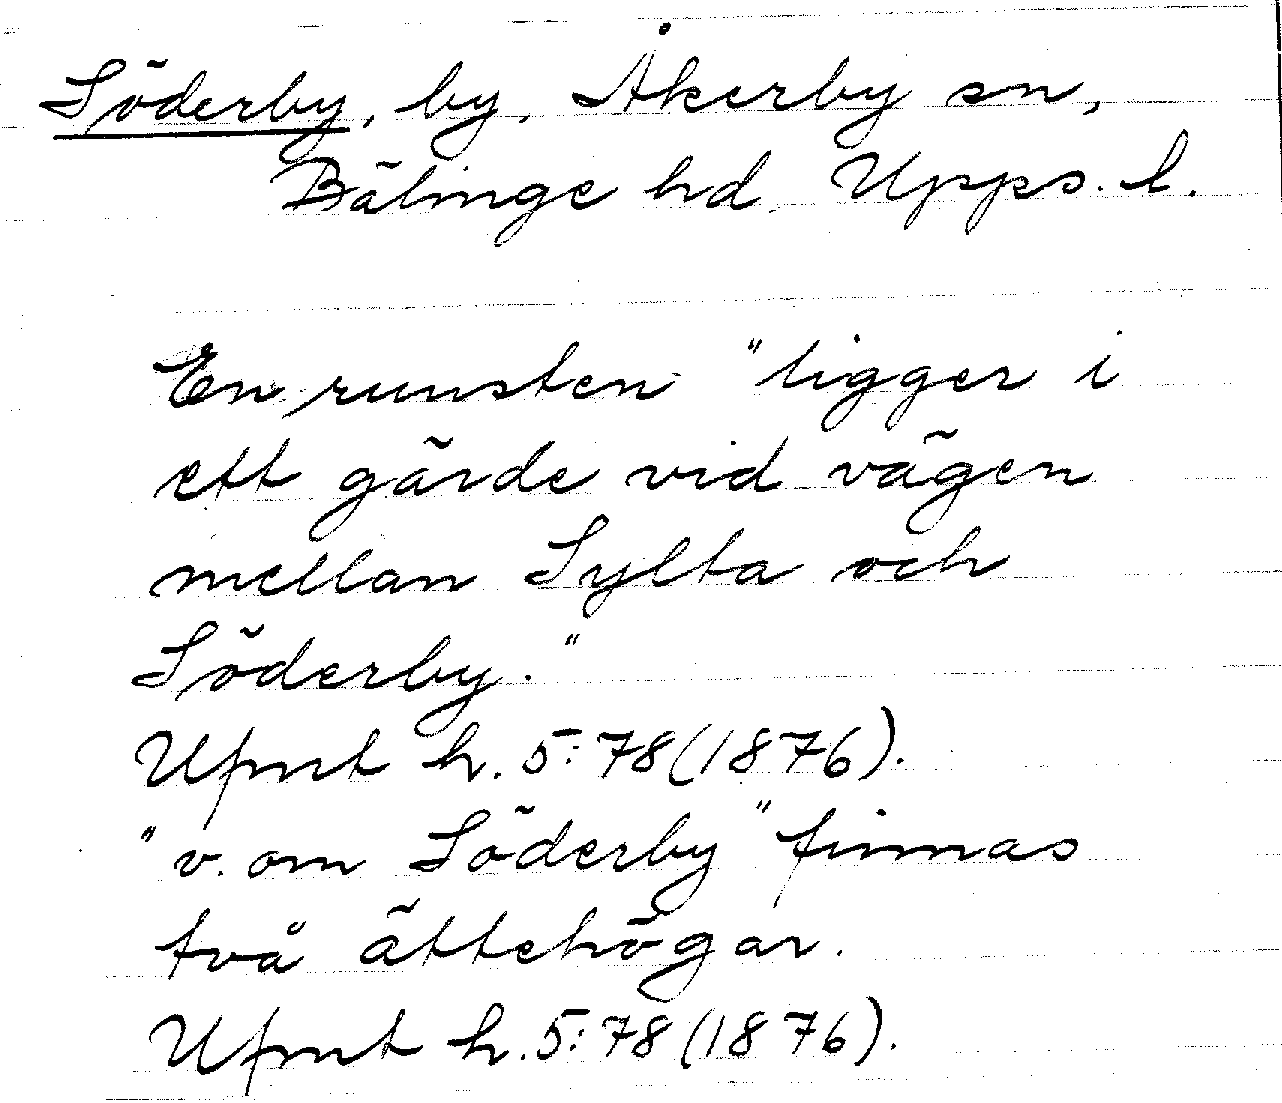 Söderby, by, Åkerby sn,
Bälinge hd, Upps. l.
En runsten "ligger i
ett gärde vid vägen
mellan Sylta och
Söderby."
Ufmt h. 5:78(1876).
"v. om Söderby" finnas
två ättehögar.
Ufmt h. 5:78(1876).